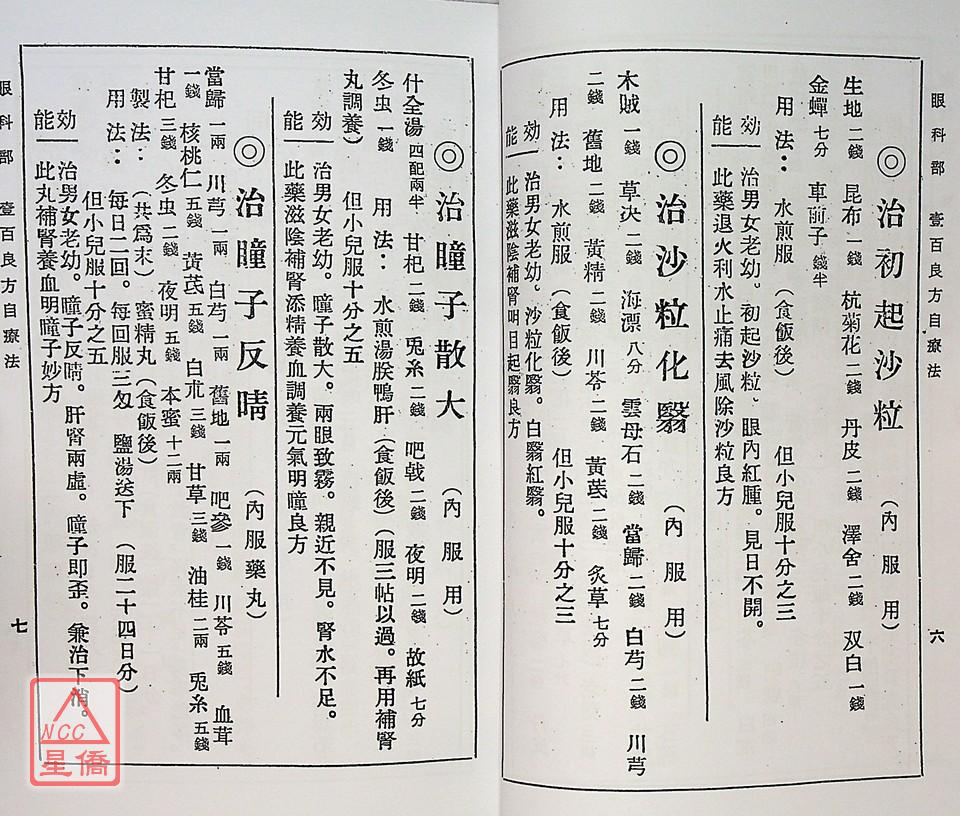 眼科部 壹百良方自療法
六
◎治初起沙粒 (內服用)
生地二錢 昆布一錢 杭菊花二錢 丹皮二錢 澤舍二錢 双白一錢
金蟬七分 車前子錢半
用法: 水煎服 (食飯後) 但小兒服十分之三
効能 治男女老幼。初起沙粒、眼內紅腫。見日不開。
此藥退火利水止痛去風除沙粒良方
◎治沙粒化翳 (內服用)
木賊一錢 草决二錢 海漂八分 雲母石二錢 當歸二錢 白芍二錢 川芎
二錢 舊地二錢 黃精二錢 川芩二錢 黃茋二錢 炙草七分
用法: 水煎服 (食飯後) 但小兒服十分之三
効能 治男女老幼。沙粒化翳。白翳紅翳。
此藥滋陰補腎明目起翳良方
◎治瞳子散大 (內服用)
什全湯四配兩半 甘杞二錢 兎糸二錢 吧戟二錢 夜明二錢 故紙七分
冬虫一錢 用法: 水煎湯朕鴨肝(食飯後)(服三帖以過。再用補腎
丸調養) 但小兒服十分之五
効能 治男女老幼。瞳子散大。兩眼致霧。親近不見。腎水不足。
此藥滋陰補腎添精養血調養元氣明瞳良方
◎治瞳子反晴 (內服藥丸)
當歸一兩 川芎一兩 白芍一兩 舊地一兩 吧參一錢 川芩五錢 血茸
一錢 核桃仁五錢 黃茋五錢 白朮三錢 甘草三錢 油桂二兩 兎糸五錢
甘杞三錢 冬虫二錢 夜明五錢 本蜜十二兩
製法: (共為末) 蜜精丸(食飯後)
用法: 每日二回。每回服三匁 鹽湯送下 (服二十四日分)
但小兒服十分之五
効能 治男女老幼。瞳子反晴。肝腎兩虛。瞳子即歪。兼治下消。
此丸補腎養血明瞳子妙方
眼科部 壹百良方自療法
七
NCC
星僑